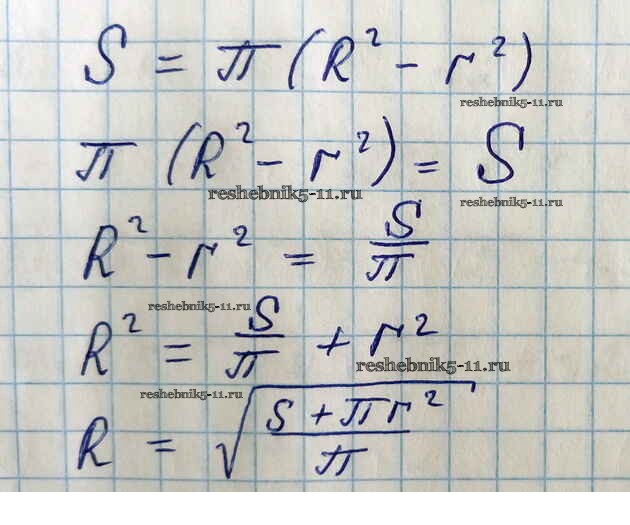 S = π (R² - r²)
reshebnik5-11.ru
π (R² - r²) = S
reshebnik5-11.ru
reshebnik5-11.ru
R² - r² = S/π
reshebnik5-11.ru
R² = S/π + r²
reshebnik5-11.ru
reshebnik5-11.ru
R = √((S + πr²)/π)